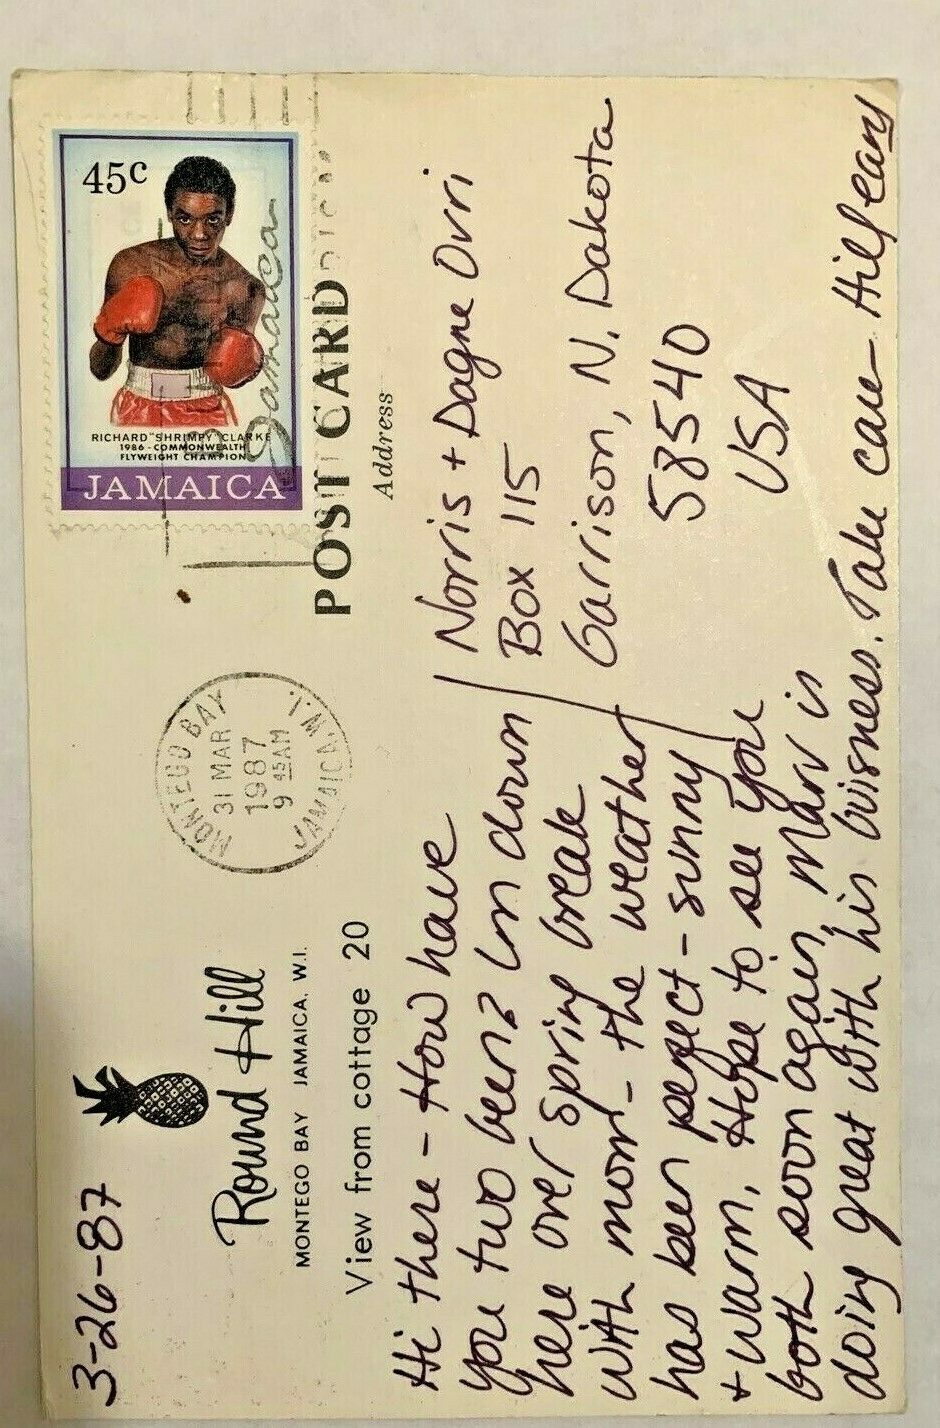 3-26-87
Round Hill
MONTEGO BAY JAMAICA, W.I.
View from cottage 20
MONTEGO BAY
31 MAR
1987
9 45AM
JAMAICA.W.I.
45c
RICHARD "SHRIMPY" CLARKE
1986 - COMMONWEALTH
FLYWEIGHT CHAMPION
JAMAICA
Jamaica
POST CARD
Address
Hi there - How have
you two been? Im down
here over spring break
with mom - the weather
has been perfect - sunny
+ warm. Hope to see you
both soon again. Marv is
doing great with his buisness. Take care - Hilfeany
Norris + Dagne Ovri
Box 115
Garrison, N. Dakota
58540
USA